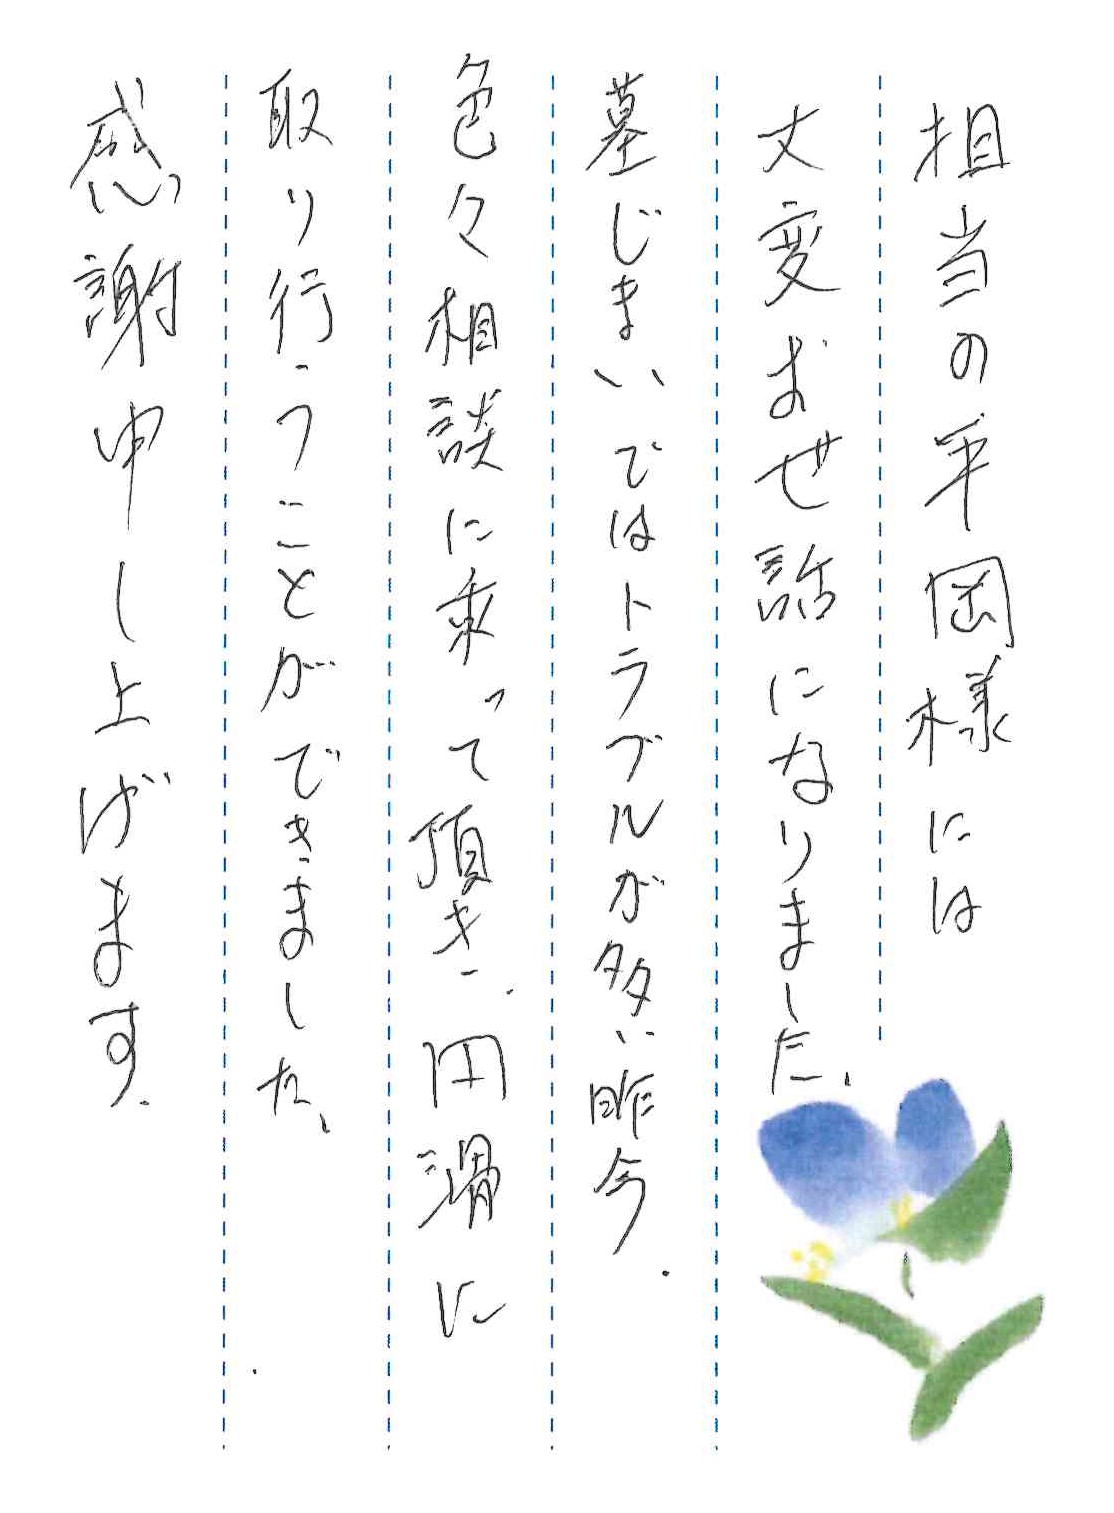 担当の平岡様には
大変おせ話になりました、
墓じまいではトラブルが多い昨今、
色々相談に乗って頂き、円滑に
取り行うことができました、
感謝申し上げます。